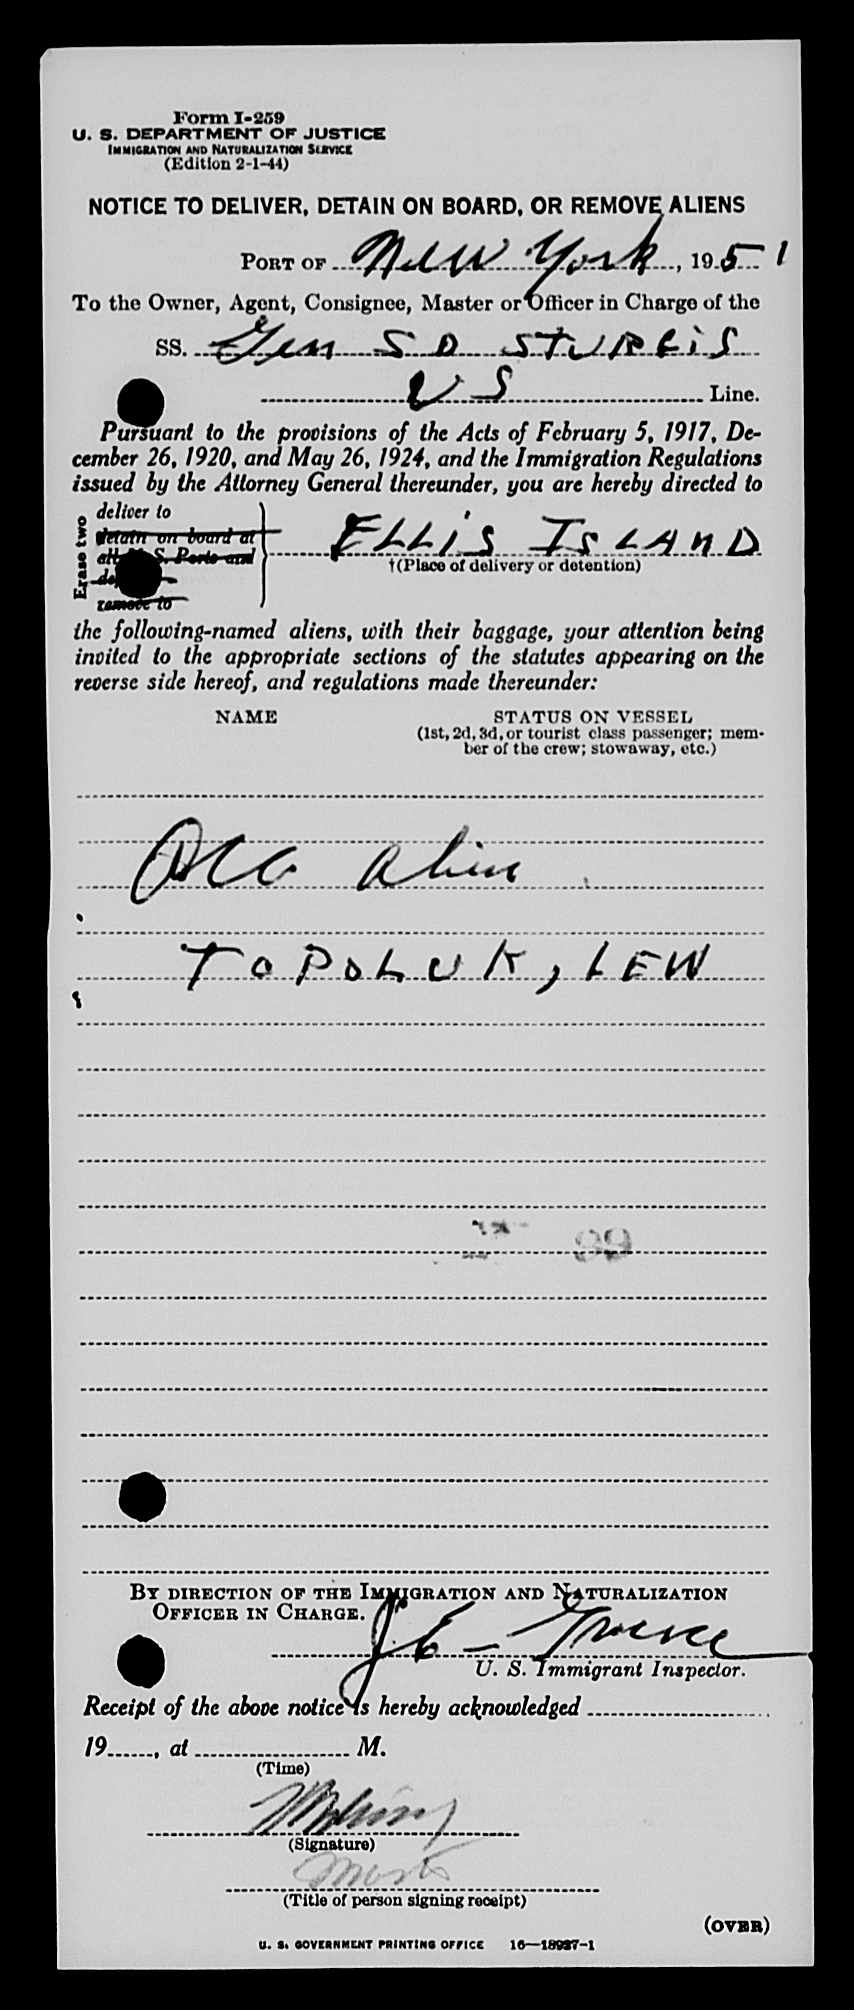 Form I-259
U. S. DEPARTMENT OF JUSTICE
IMMIGRATION AND NATURALIZATION SERVICE
(Edition 2-1-44)
NOTICE TO DELIVER, DETAIN ON BOARD, OR REMOVE ALIENS
PORT OF New York, 1951
To the Owner, Agent, Consignee, Master or Officer in Charge of the
SS. Gen S D STURGiS
US Line.
Pursuant to the provisions of the Acts of February 5, 1917, De-
cember 26, 1920, and May 26, 1924, and the Immigration Regulations
issued by the Attorney General thereunder, you are hereby directed to
Erase two
deliver to
detain on board at
all U. S. Ports and
remove to
ELLiS ISLAND
†(Place of delivery or detention)
the following-named aliens, with their baggage, your attention being
invited to the appropriate sections of the statutes appearing on the
reverse side hereof, and regulations made thereunder:
NAME STATUS ON VESSEL
(1st, 2d, 3d, or tourist class passenger; mem-
ber of the crew; stowaway, etc.)
Alien
TOPOLUK, LEW
99
BY DIRECTION OF THE IMMIGRATION AND NATURALIZATION
OFFICER IN CHARGE.
U. S. Immigrant Inspector.
Receipt of the above notice is hereby acknowledged
19......, at M.
(Time)
(Signature)
(Title of person signing receipt)
(OVER)
U. S. GOVERNMENT PRINTING OFFICE 16—18927-1